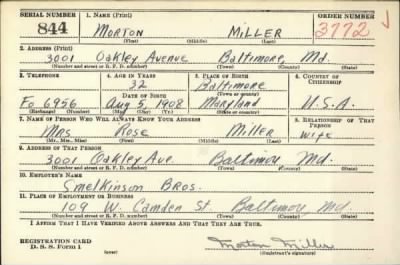 SERIAL NUMBER 1. NAME (Print) ORDER NUMBER
844 MORTON MILLER 3772
(First) (Middle) (Last)
2. ADDRESS (Print)
3001 Oakley Avenue Baltimore, Md.
(Number and street or R. F. D. number) (Town) (County) (State)
3. TELEPHONE 4. AGE IN YEARS 5. PLACE OF BIRTH 6. COUNTRY OF CITIZENSHIP
32 Baltimore
DATE OF BIRTH (Town or county)
Fo 6956 Aug 5, 1908 Maryland U.S.A.
(Exchange) (Number) (Mo.) (Day) (Yr.) (State or country)
7. NAME OF PERSON WHO WILL ALWAYS KNOW YOUR ADDRESS 8. RELATIONSHIP OF THAT PERSON
Mrs Rose Miller wife
(Mr., Mrs., Miss) (First) (Middle) (Last)
9. ADDRESS OF THAT PERSON
3001 Oakley Ave. Baltimore Md.
(Number and street or R. F. D. number) (Town) (County) (State)
10. EMPLOYER'S NAME
Smelkinson Bros.
11. PLACE OF EMPLOYMENT OR BUSINESS
109 W. Camden St. Baltimore, Md.
(Number and street or R. F. D. number) (Town) (County) (State)
I AFFIRM THAT I HAVE VERIFIED ABOVE ANSWERS AND THAT THEY ARE TRUE.
REGISTRATION CARD
D. S. S. Form 1 Morton Miller
(over) (Registrant's signature)